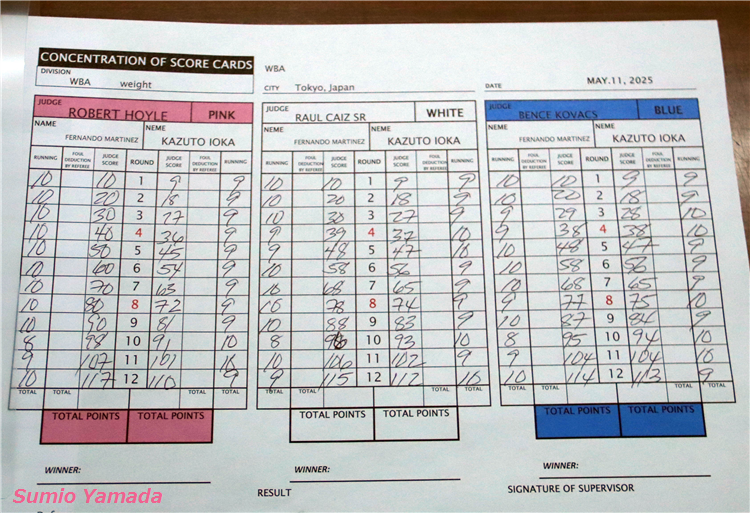 CONCENTRATION OF SCORE CARDS
DIVISION
WBA weight
WBA
CITY Tokyo, Japan
DATE MAY.11, 2025
JUDGE ROBERT HOYLE PINK JUDGE RAUL CAIZ SR WHITE JUDGE BENCE KOVACS BLUE
NAME NEME NEME NEME NEME NEME
FERNANDO MARTINEZ KAZUTO IOKA FERNANDO MARTINEZ KAZUTO IOKA FERNANDO MARTINEZ KAZUTO IOKA
RUNNING FOUL DEDUCTION BY REFEREE JUDGE SCORE ROUND JUDGE SCORE FOUL DEDUCTION BY REFEREE RUNNING RUNNING FOUL DEDUCTION BY REFEREE JUDGE SCORE ROUND JUDGE SCORE FOUL DEDUCTION BY REFEREE RUNNING RUNNING FOUL DEDUCTION BY REFEREE JUDGE SCORE ROUND JUDGE SCORE FOUL DEDUCTION BY REFEREE RUNNING
10 10 1 9 9 10 10 1 9 9 10 10 1 9 9
10 20 2 18 9 10 20 2 18 9 10 20 2 18 9
10 30 3 27 9 10 30 3 27 9 9 29 3 28 10
10 40 4 36 9 9 39 4 37 10 9 38 4 38 10
10 50 5 45 9 9 48 5 47 10 10 48 5 47 9
10 60 6 54 9 10 58 6 56 9 10 58 6 56 9
10 70 7 63 9 10 68 7 65 9 10 68 7 65 9
10 80 8 72 9 10 78 8 74 9 9 77 8 75 10
10 90 9 81 9 10 88 9 83 9 10 87 9 84 9
8 98 10 91 10 8 96 10 93 10 8 95 10 94 10
9 107 11 101 10 10 106 11 102 9 9 104 11 104 10
10 117 12 110 9 9 115 12 112 10 10 114 12 113 9
TOTAL TOTAL TOTAL TOTAL TOTAL TOTAL TOTAL TOTAL TOTAL TOTAL TOTAL TOTAL
TOTAL POINTS TOTAL POINTS TOTAL POINTS TOTAL POINTS TOTAL POINTS TOTAL POINTS
WINNER: WINNER: WINNER:
RESULT
SIGNATURE OF SUPERVISOR
Sumio Yamada